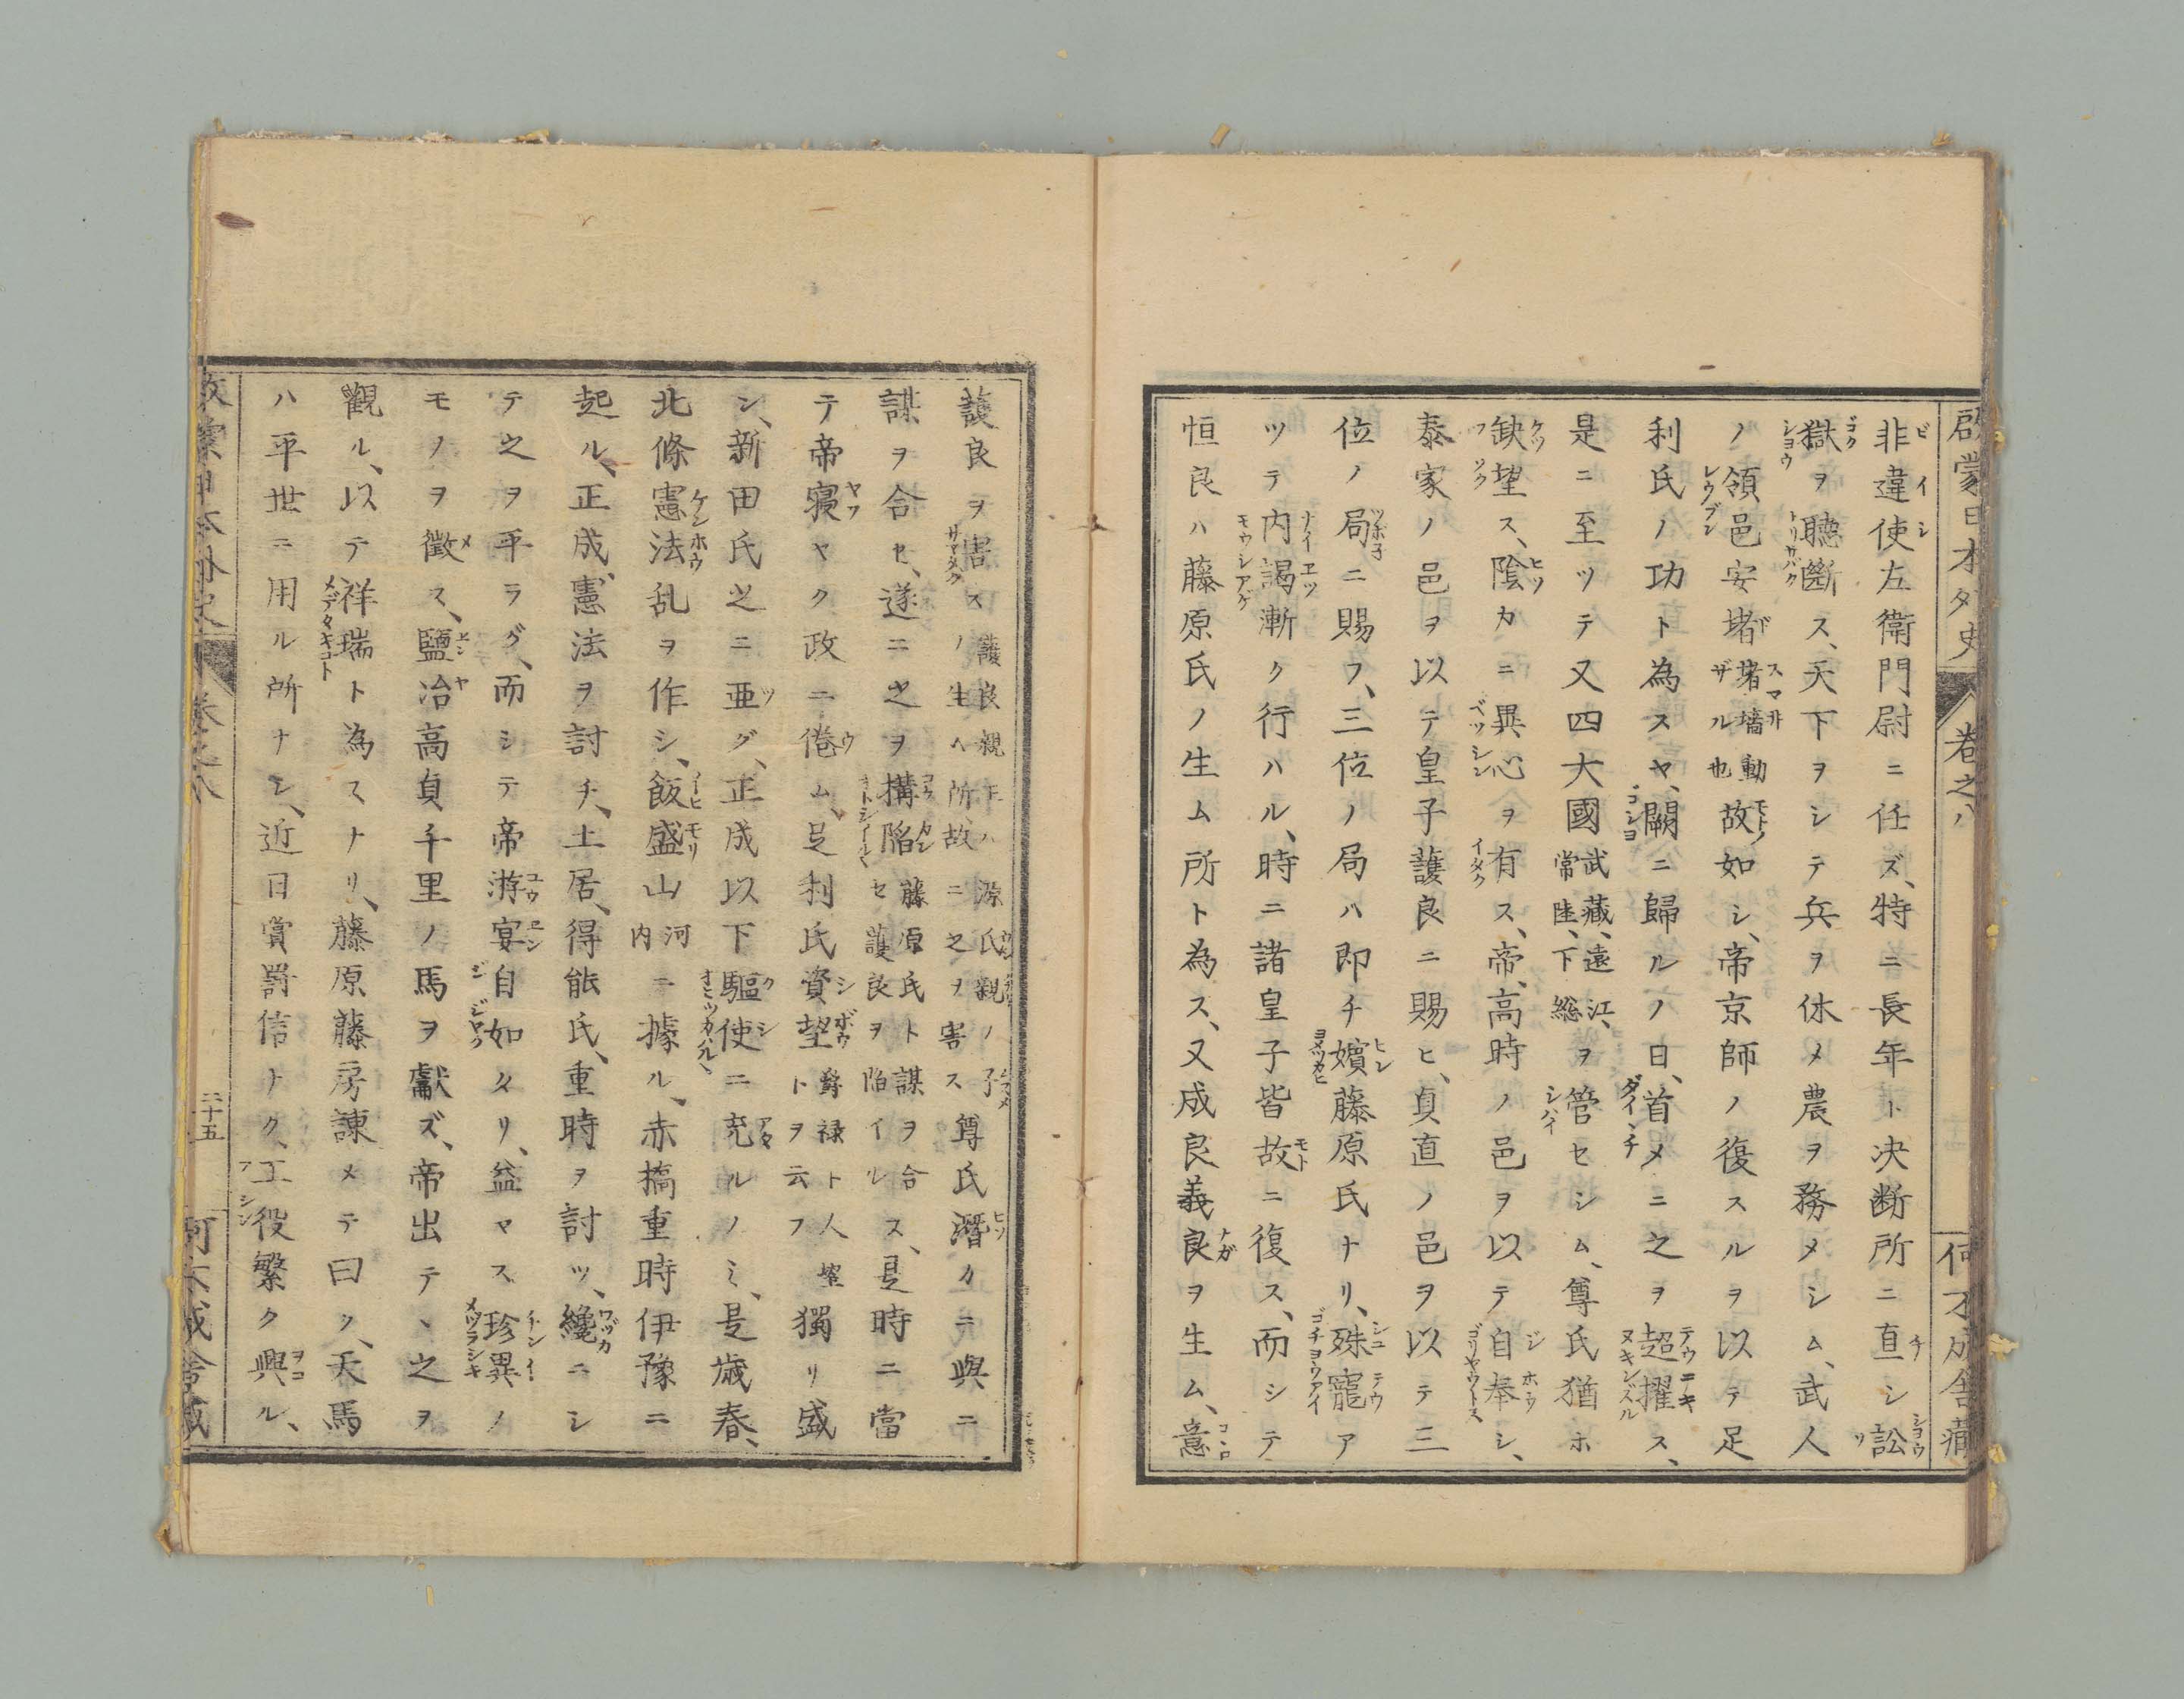 啓蒙日本外史 巻之八 何不成舎藏
非違使左衛門尉ニ任ズ、特ニ長年ト决断所ニ直シ訟
獄ヲ聽斷ス、天下ヲシテ兵ヲ休メ農ヲ務メシム、武人
ノ領邑安堵堵墻動ザル也故如シ、帝京師ノ復スルヲ以テ足
利氏ノ功ト為スヤ、闕ニ歸ルノ日、首メニ之ヲ超擢ス、
是ニ至ツテ又四大國武藏、遠江、常陸、下総ヲ管セシム、尊氏猶ホ
缺望ス、陰カニ異心ヲ有ス、帝、高時ノ邑ヲ以テ自奉シ、
泰家ノ邑ヲ以テ皇子護良ニ賜ヒ、貞直ノ邑ヲ以テ三
位ノ局ニ賜フ、三位ノ局ハ即チ嬪藤原氏ナリ、殊寵ア
ツテ内謁漸ク行ハル、時ニ諸皇子皆故ニ復ス、而シテ
恒良ハ藤原氏ノ生ム所ト為ス、又成良義良ヲ生ム、意
護良ヲ害ス護良親王ハ源氏親ノ子ノ生ム所故ニ之ヲ害ス尊氏潛カニ與ニ
謀ヲ合セ、遂ニ之ヲ構陷セ藤原氏ト謀ヲ合護良ヲ陷イルス、是時ニ當
テ帝寝ヤク政ニ倦ム、足利氏資望爵禄ト人望トヲ云フ獨リ盛
シ、新田氏之ニ亜グ、正成以下驅使ニ充ルノミ、是歳春、
北條憲法乱ヲ作シ、飯盛山河内ニ據ル、赤橋重時伊豫ニ
起ル、正成、憲法ヲ討チ、土居、得能氏、重時ヲ討ツ、纔ニシ
テ之ヲ平ラグ、而シテ帝游宴自如タリ、益マス珍異ノ
モノヲ徴ス、鹽冶高貞千里ノ馬ヲ獻ズ、帝出テ丶之ヲ
觀ル、以テ祥瑞ト為スナリ、藤原藤房諌メテ曰ク、天馬
ハ平世ニ用ル所ナシ、近日賞罰信ナク、工役繁ク興ル、
二十五